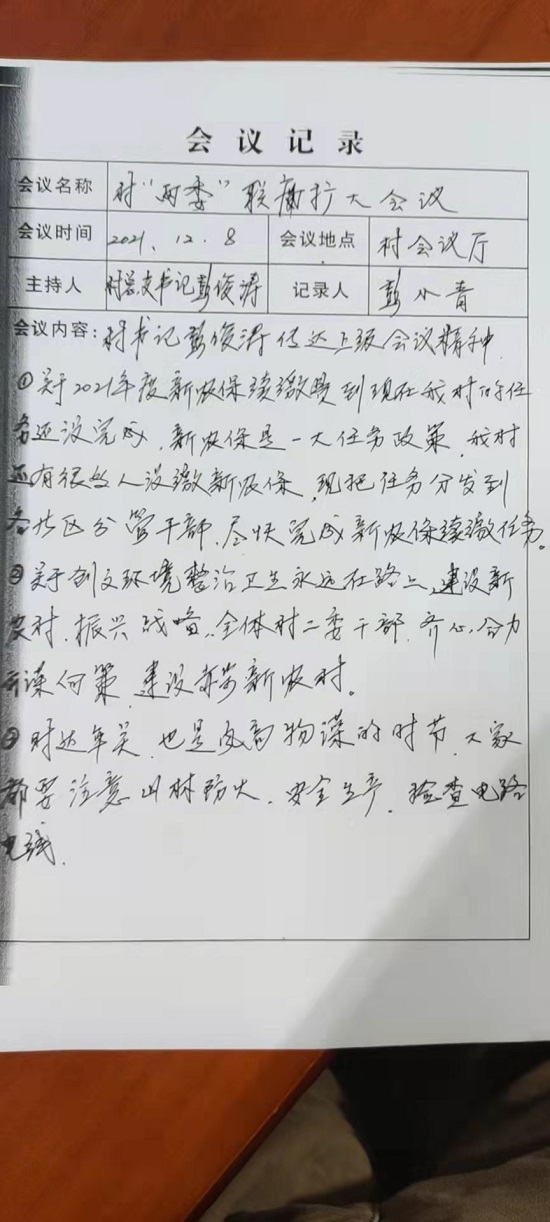 会议记录
会议名称 村“两委”联席扩大会议
会议时间 2021.12.8 会议地点 村会议厅
主持人 村总支书记彭俊涛 记录人 彭小青
会议内容：村书记彭俊涛传达上级会议精神.
①关于2021年度新农保续缴费到现在我村的任
务还没完成，新农保是一大任务政策，我村
还有很多人没缴新农保，现把任务分发到
各片区分管干部，尽快完成新农保续缴任务。
②关于创文环境整治卫生永远在路上，建设新
农村，振兴战略，全体村二委干部，齐心合力
谋何策，建设新农村。
③时达年关，也是风高物燥的时节，大家
都要注意山林防火，安全生产，检查电路
电线.